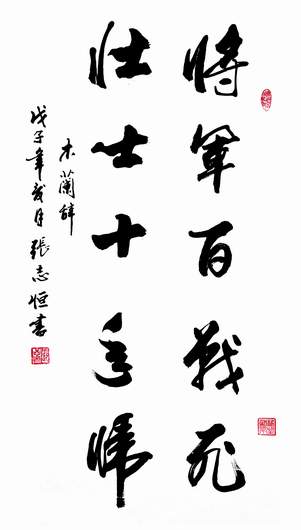 將軍百戰死
壯士十年歸
木蘭辭
戊子年月張志恒書